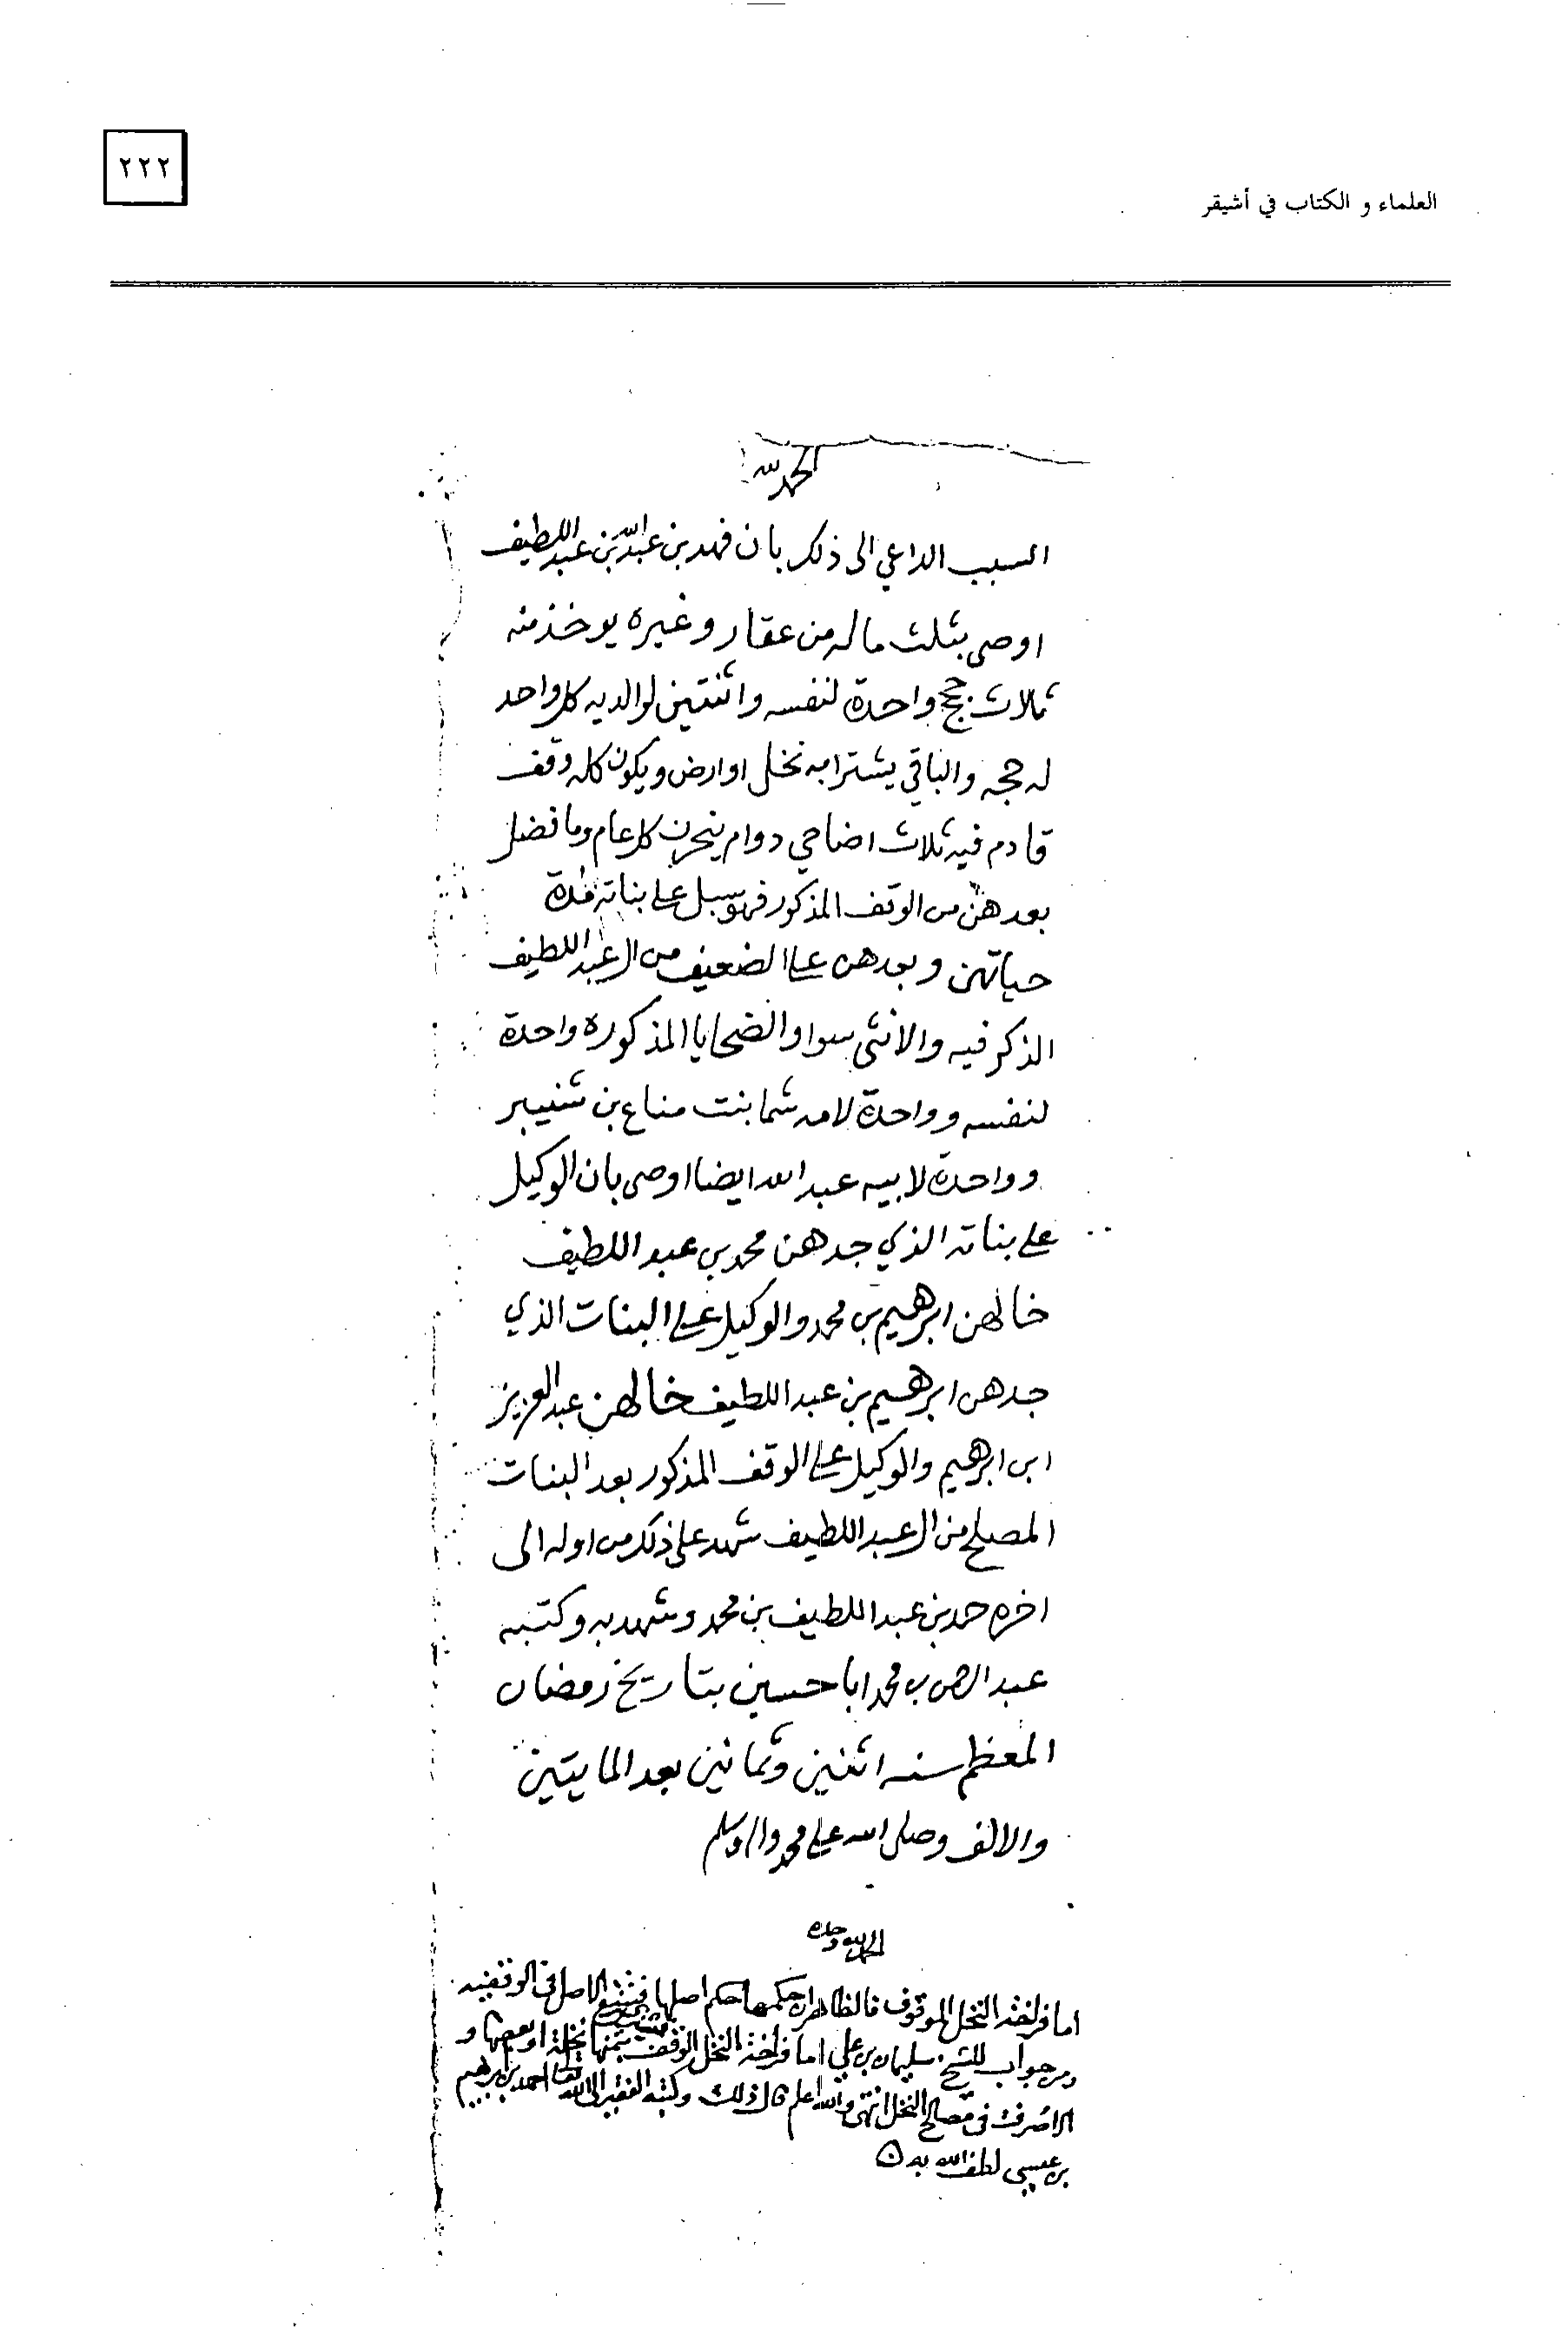 ٢٢٢
العلماء و الكتاب في أشيقر
الحمد لله
السبب الداعي الى ذلك بان فهد بن عبدالله بن عبداللطيف
اوصى بثلث ماله من عقار وغيره يوخذ منه
ثلاث حجج واحدة لنفسه واثنتين لوالديه كل واحد
له حجه والباقي يشترا به نخل او ارض ويكون كله وقف
قادم فيه ثلاث اضاحي دوام ينحرن كل عام وما فضل
بعدهن من الوقف المذكور فهو سبل على بناته مدة
حياتهن وبعدهن على الضعيف من ال عبداللطيف
الذكر فيه والانثى سوا والضحايا المذكوره واحدة
لنفسه وواحدة لامه شما بنت مناع بن شنيبر
وواحدة لابيه عبدالله ايضا اوصى بان الوكيل
على بناته الذي جدهن محمد بن عبد اللطيف
خالهن ابرهيم بن محمد والوكيل على البنات الذي
جدهن ابرهيم بن عبد اللطيف خالهن عبدالعزيز
ابن ابرهيم والوكيل على الوقف المذكور بعد البنات
المصلح من ال عبد اللطيف شهد على ذلك من اوله الى
اخره حمد بن عبد اللطيف بن محمد وشهد به وكتبه
عبد الرحمن بن محمد ابا حسين بتاريخ رمضان
المعظم سنه اثنين وثمانين بعد المايتين
والالف وصلى الله على محمد واله وسلم
الحمد لله وحده
اما فراخة النخل الموقوف فالظاهر ان حكمها حكم اصلها فتتبع الاصل في الوقفيه
ومن جواب للشيخ سليمان بن علي اما فراخة النخل الوقف بثمنها نخلة او بعضها و
الا صرف في مصالح النخل انتهى والله اعلم قال ذلك وكتبه الفقير الى الله تعالى احمد بن ابرهيم
بن عيسى لطف الله به